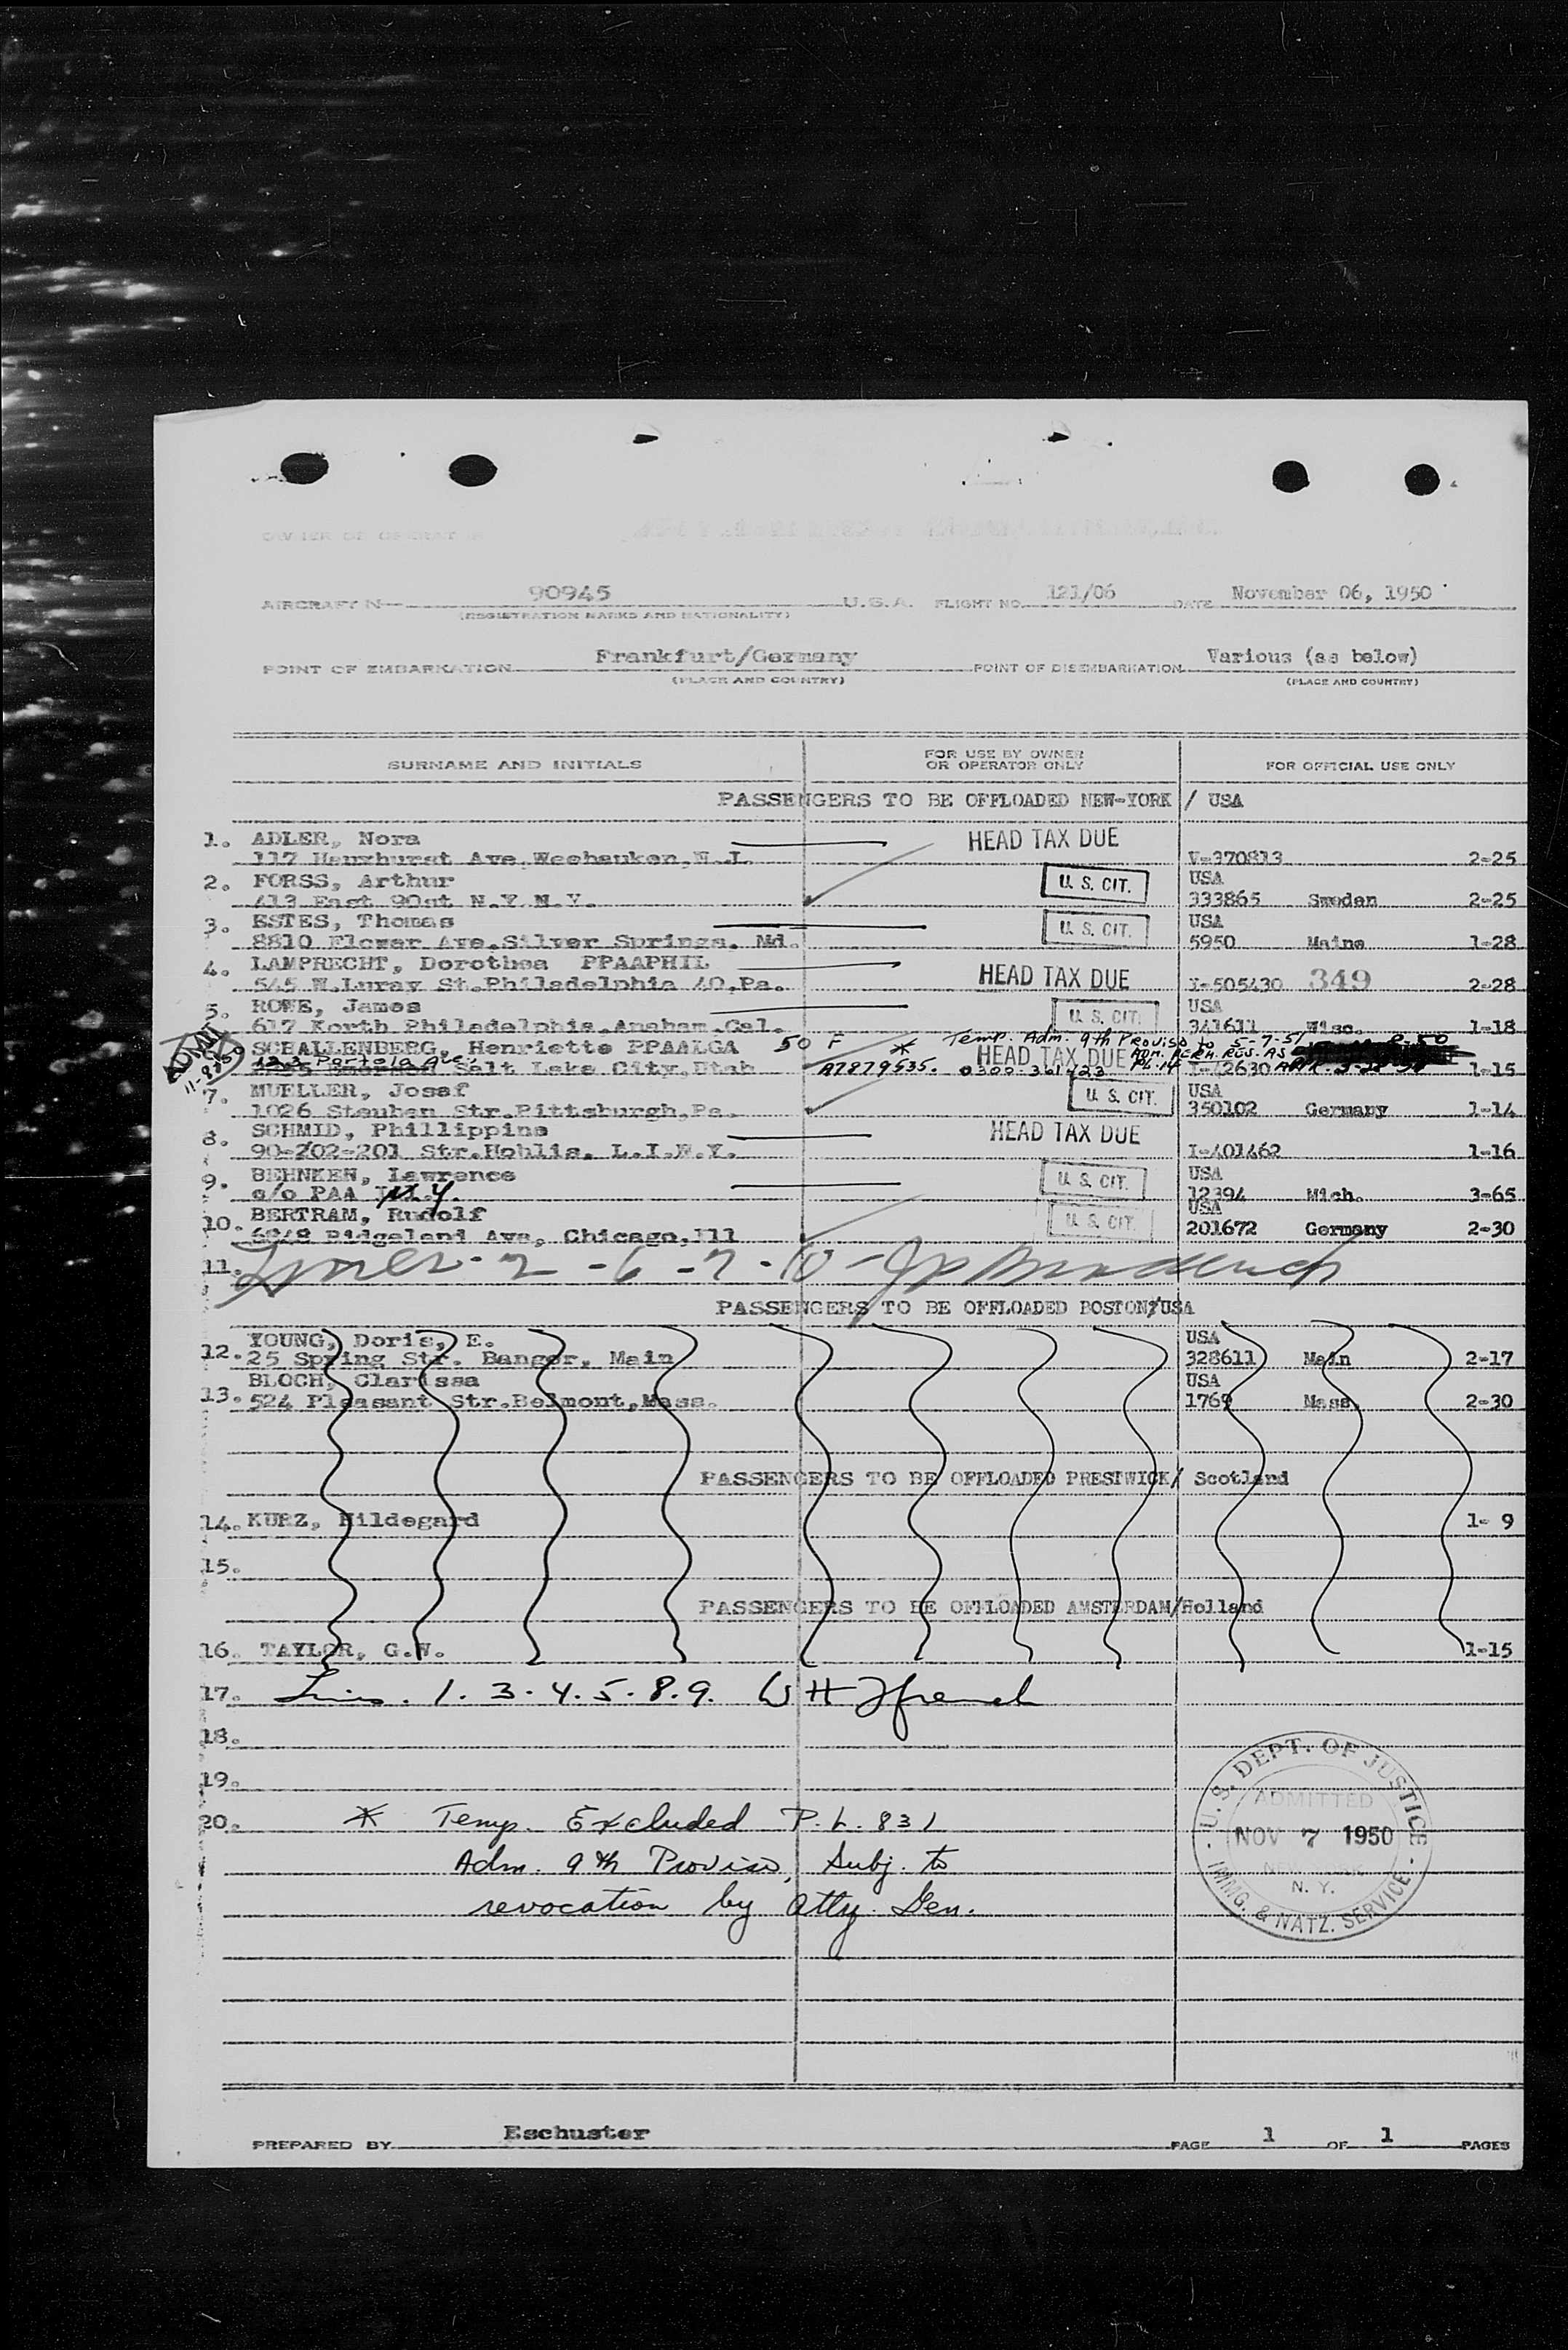 AIRCRAFT N 90945 U.S.A. FLIGHT NO. 121/06 DATE November 06, 1950
(REGISTRATION MARKS AND NATIONALITY)
POINT OF EMBARKATION Frankfurt/Germany POINT OF DISEMBARKATION Various (as below)
(PLACE AND COUNTRY) (PLACE AND COUNTRY)
SURNAME AND INITIALS FOR USE BY OWNER OR OPERATOR ONLY FOR OFFICIAL USE ONLY
PASSENGERS TO BE OFFLOADED NEW-YORK / USA
1. ADLER, Nora HEAD TAX DUE
117 Hauxhurst Ave.Weehauken,N.J. V-370813 2-25
2. FORSS, Arthur U. S. CIT. USA
413 East 90st N.Y.N.Y. 333865 Sweden 2-25
3. ESTES, Thomas U. S. CIT. USA
8810 Flower Ave.Silver Springs. Md. 5950 Maine 1-28
4. LAMPRECHT, Dorothea PPAAPHIL HEAD TAX DUE
545 W.Luray St.Philadelphia 40,Pa. I-505430 349 2-28
5. ROWE, James U. S. CIT. USA
617 North Philadelphia.Anaham.Cal. 341611 Wisc. 1-18
SCHALLENBERG, Henriette PPAALGA 50 F * Temp. Adm. 9th Proviso to 5-7-51
ADMIT 11-9-50 Salt Lake City.Utah A7879535. 0300-301423 HEAD TAX DUE ADM. PERM. RES. AS I-42630 1-15
7. MUELLER, Josef U. S. CIT. USA
1026 Steuben Str.Pittsburgh,Pa. 350102 Germany 1-14
8. SCHMID, Phillippine HEAD TAX DUE
90-202-201 Str.Hohlis. L.I.N.Y. I-401462 1-16
9. BEHNKEN, Lawrence U. S. CIT. USA
c/o PAA N.Y. 12394 Mich. 3-65
10. BERTRAM, Rudolf U. S. CIT. USA
6848 Ridgeland Ave, Chicago,Ill 201672 Germany 2-30
11. Lines - 2 - 6 - 7 - 10 -
PASSENGERS TO BE OFFLOADED BOSTON/USA
12. YOUNG, Doris, E. USA
25 Spring Str. Bangor, Main 328611 Main 2-17
BLOCH, Clarissa USA
13. 524 Pleasant Str.Belmont,Mass. 1769 Mass. 2-30
PASSENGERS TO BE OFFLOADED PRESTWICK/ Scotland
14. KURZ, Hildegard 1- 9
15.
PASSENGERS TO BE OFFLOADED AMSTERDAM/Holland
16. TAYLOR, G.W. 1-15
17. Lines. 1. 3. 4. 5. 8. 9. W H French
18.
19.
20. * Temp. Excluded P.L. 831
Adm. 9th Proviso, Subj. to
revocation by Atty. Gen.
U. S. DEPT. OF JUSTICE
ADMITTED
NOV 7 1950
NEW YORK
N. Y.
IMMG. & NATZ. SERVICE
PREPARED BY Eschuster PAGE 1 OF 1 PAGES